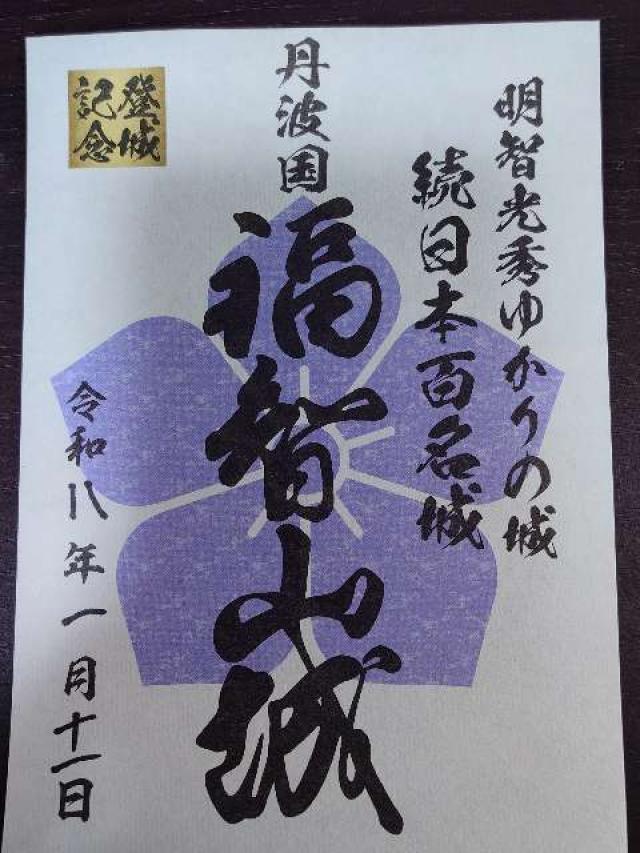 明智光秀ゆかりの城
続日本百名城
丹波国
福智山城
登城
記念
令和八年一月十一日